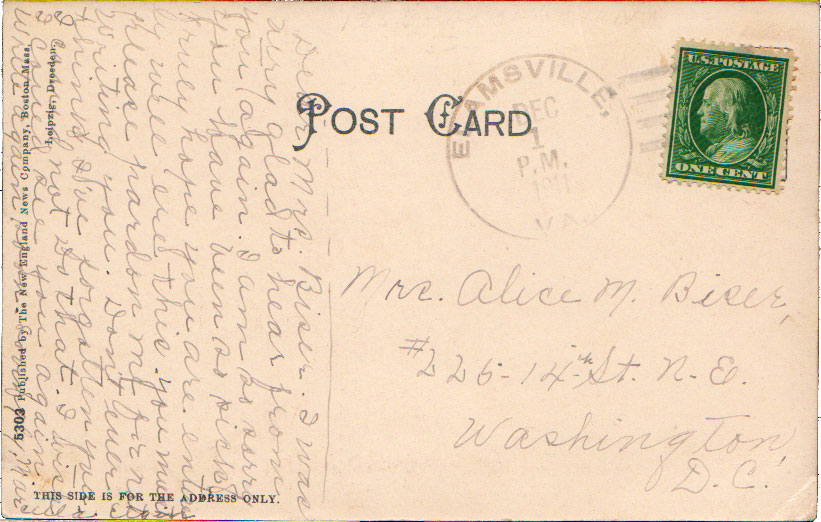 POST CARD
EAMSVILLE,
DEC
1
P.M.
1911
VA.
U.S. POSTAGE
ONE CENT
Mrs. Alice M. Biser,
#226-14th St. N.E.
Washington,
D.C.
Dear Mrs. Biser. I was
very glad to hear from
you again. I am so sorry
you have been so sick.
truly hope you are entire
ly well ere this. you must
please pardon me for not
writing you. Dont ever
think I've forgotten you
I could not do that. I wish
I could see you again.
Write again soon.
Marcella
5303 Published by The New England News Company, Boston Mass.
Leipzig, Dresden.
THIS SIDE IS FOR THE ADDRESS ONLY.